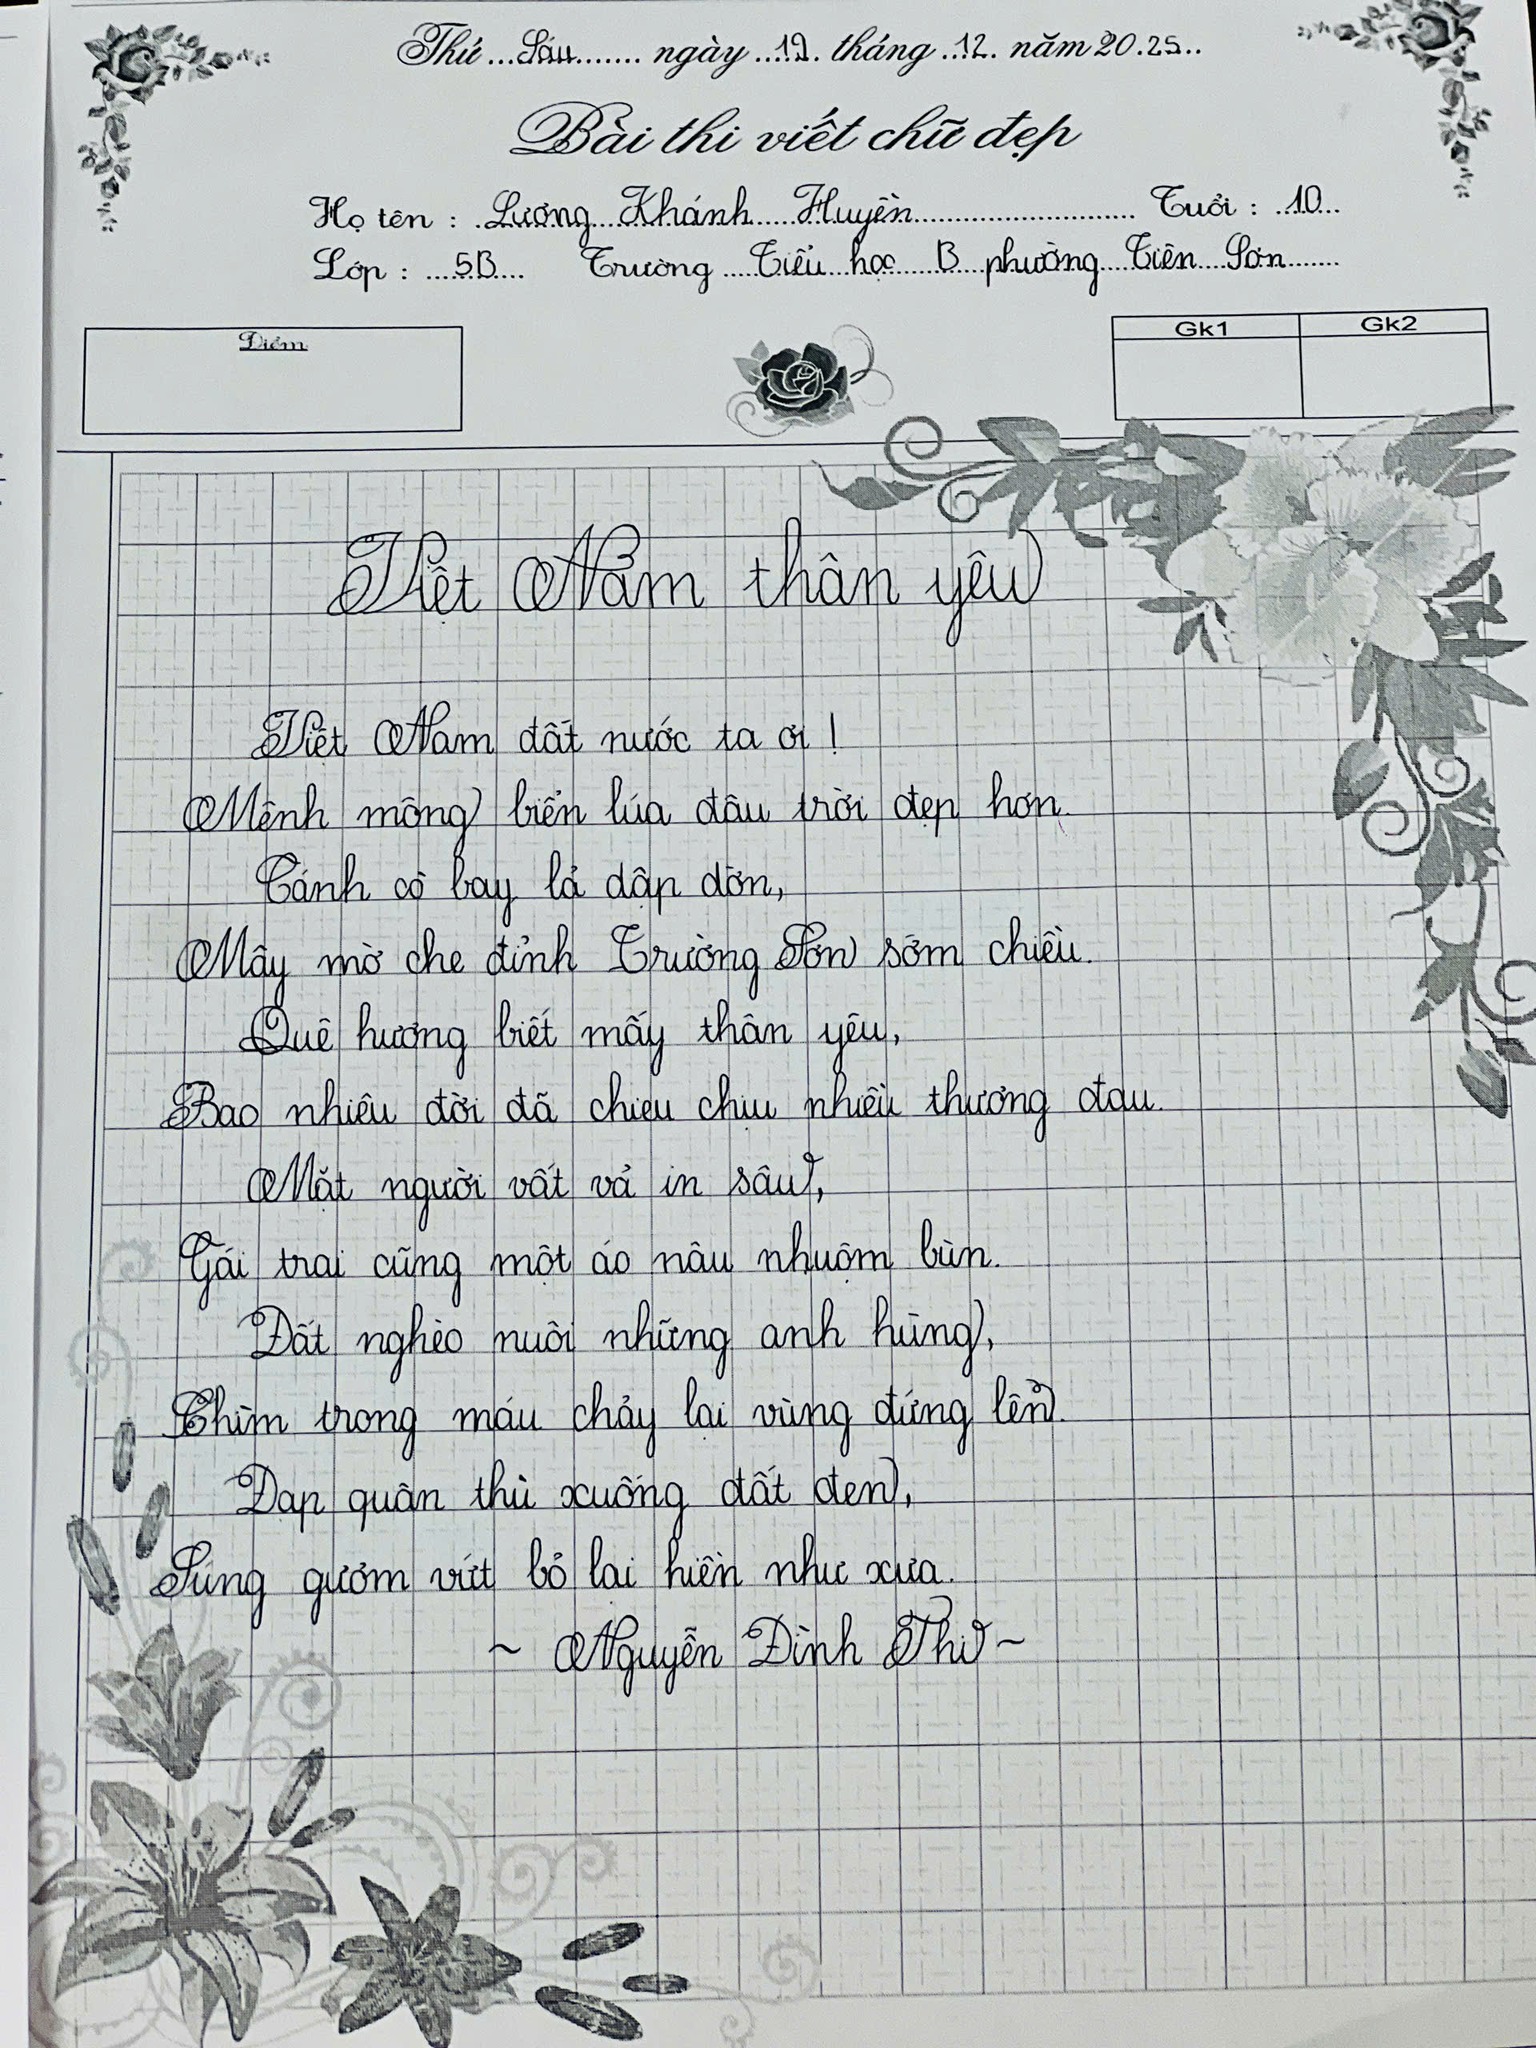 Thứ ...Sáu........ ngày ...19.. tháng ...12.. năm 20.25..
Bài thi viết chữ đẹp
Họ tên : .Lương Khánh Huyền........ Tuổi : ...10...
Lớp : ....5B.... Trường ....Tiểu học B phường Tiên Sơn......
Điểm
Gk1 Gk2
Việt Nam thân yêu
Việt Nam đất nước ta ơi !
Mênh mông biển lúa đâu trời đẹp hơn.
Cánh cò bay lả dập dờn,
Mây mờ che đỉnh Trường Sơn sớm chiều.
Quê hương biết mấy thân yêu,
Bao nhiêu đời đã chịu nhiều thương đau.
Mặt người vất vả in sâu,
Gái trai cũng một áo nâu nhuộm bùn.
Đất nghèo nuôi những anh hùng,
Chìm trong máu chảy lại vùng đứng lên.
Đạp quân thù xuống đất đen,
Súng gươm vứt bỏ lại hiền như xưa.
~ Nguyễn Đình Thi ~